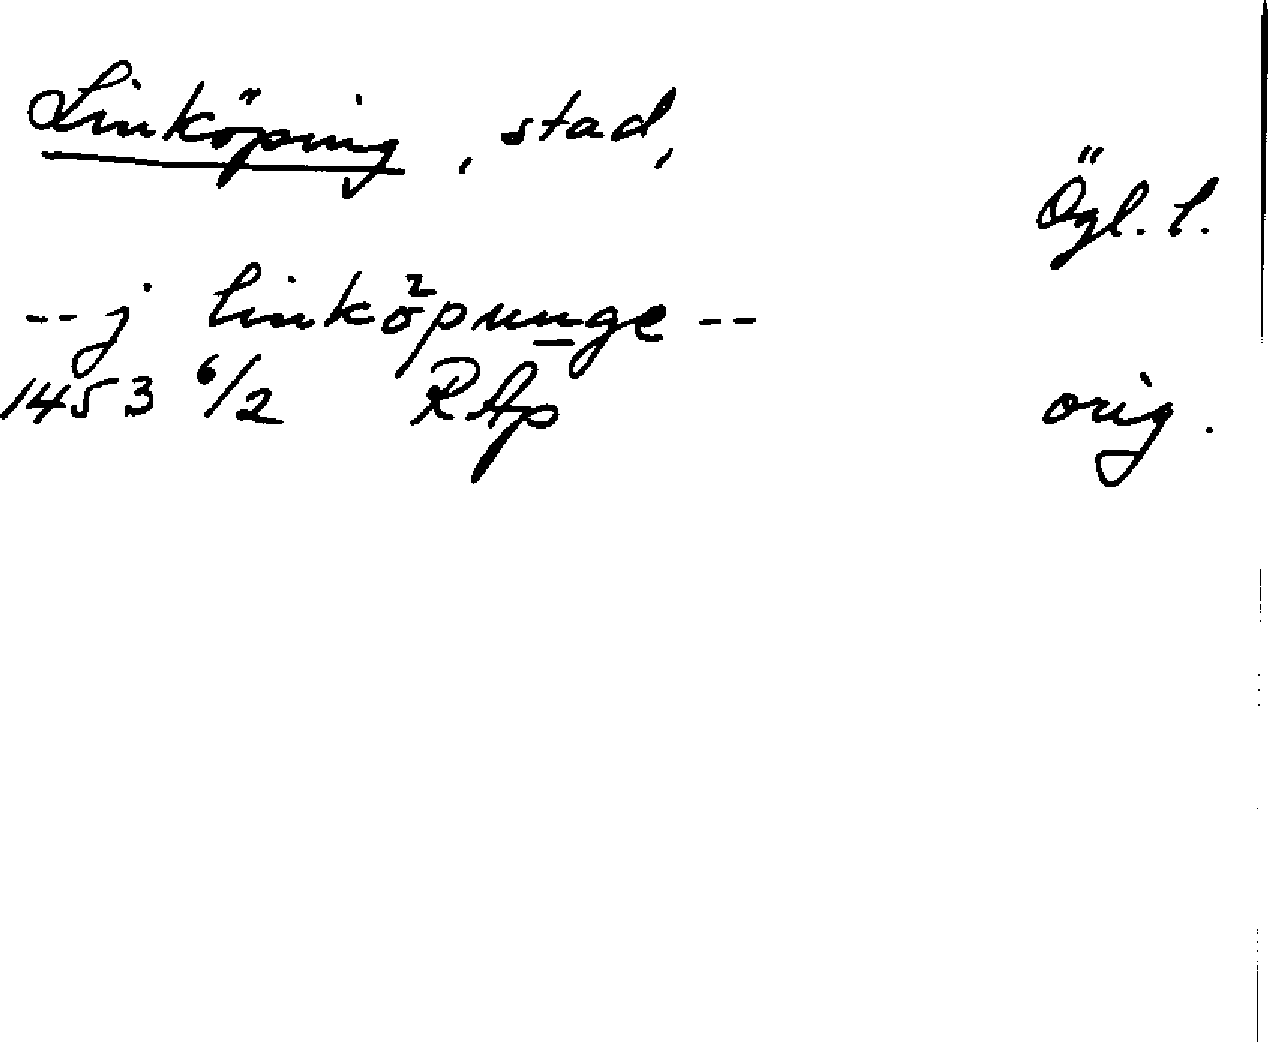 Linköping, stad,
Ögl. l.
--j linköpunge--
1453 6/2 RAp orig.